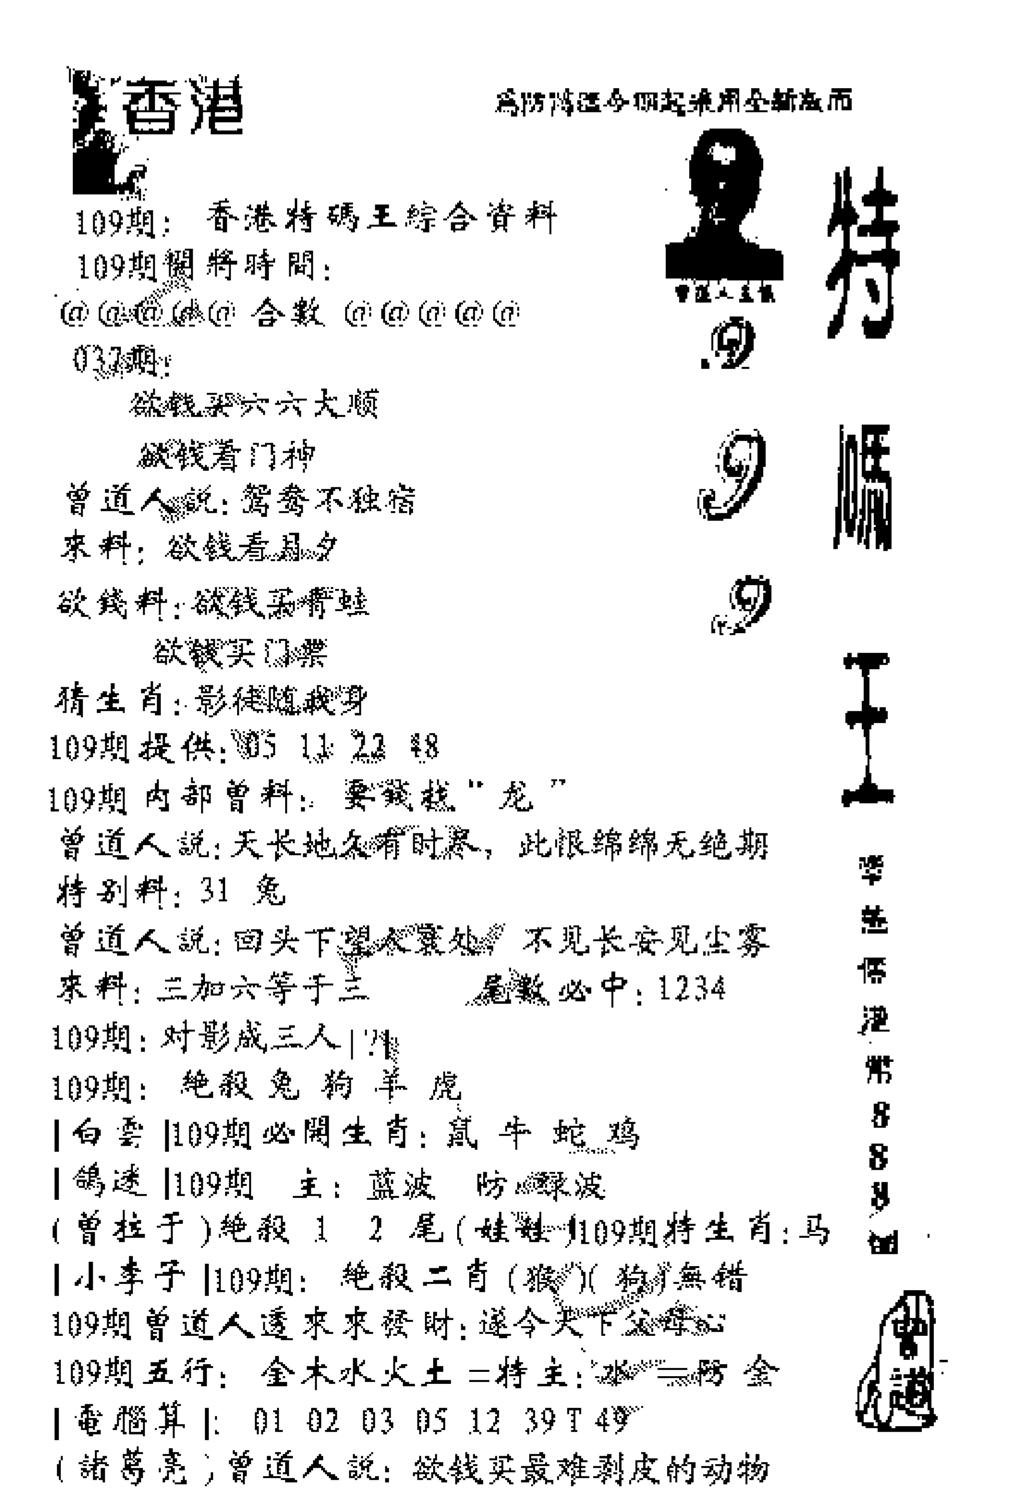 香港
為防 全新版面
109期: 香港特碼王綜合資料
109期開將時間:
@@@@@ 合數 @@@@@
037期:
欲钱买六六大顺
欲钱看门神
曾道人説:鸳鸯不独宿
來料: 欲钱看月夕
欲錢料:欲钱买青蛙
欲钱买门票
猜生肖:影徒随我身
109期提供:05 11 22 48
109期内部曾料: 要錢找“龙”
曾道人説:天长地久有时尽, 此恨绵绵无绝期
特别料: 31 兔
曾道人説:回头下望人寰处, 不见长安见尘雾
來料:三加六等于三 尾数必中:1234
109期:对影成三人
109期: 絶殺 兔 狗 羊 虎
|白雲|109期必開生肖: 鼠 牛 蛇 鸡
|鴿迷|109期 主: 蓝波 防 绿波
(曾拉于)绝殺 1 2 尾(娃娃)109期特生肖:马
|小李子|109期: 絶殺二肖(猴)(狗)無错
109期曾道人透來來發財:遂令天下父母心
109期五行: 金木水火土=特主:水 防 金
|電腦算|: 01 02 03 05 12 39 T 49
(諸葛亮)曾道人説: 欲钱买最难剥皮的动物
9
9
9
特
碼
王
港
幣
8
8
8
曾道